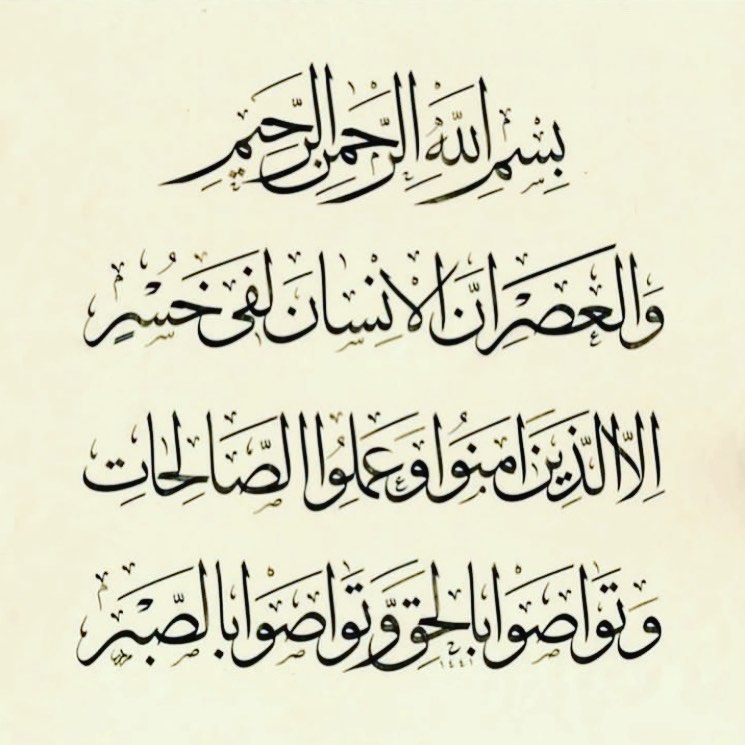 بِسْمِ اللّٰهِ الرَّحْمٰنِ الرَّحِيمِ
وَالْعَصْرِ اِنَّ الْاِنْسَانَ لَفِى خُسْرٍ
اِلَّا الَّذِينَ اٰمَنُوا وَعَمِلُوا الصَّالِحَاتِ
وَتَوَاصَوْا بِالْحَقِّ وَتَوَاصَوْا بِالصَّبْرِ
١٤٤١